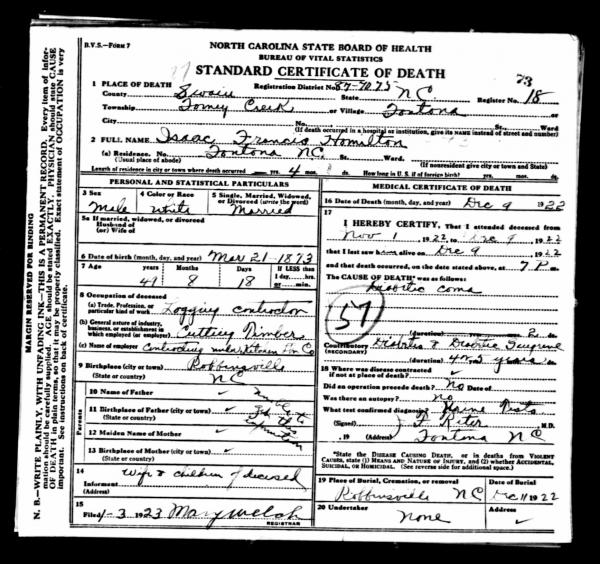 B.V.S.—FORM 7
NORTH CAROLINA STATE BOARD OF HEALTH
BUREAU OF VITAL STATISTICS
STANDARD CERTIFICATE OF DEATH
73
1 PLACE OF DEATH Registration District No. 87-4075
County Swain State NC Register No. 18
Township Forney Creek or Village Fontana
City No. St. Ward
(If death occurred in a hospital or institution, give its NAME instead of street and number)
2 FULL NAME Isaac Francis Hamilton
(a) Residence. No. Fontana NC. St. Ward.
(Usual place of abode) (If nonresident give city or town and State)
Length of residence in city or town where death occurred yrs. 4 mos. ds. How long in U.S. if of foreign birth? yrs. mos. ds.
PERSONAL AND STATISTICAL PARTICULARS
3 Sex 4 Color or Race 5 Single, Married, Widowed, or Divorced (write the word)
Male white Married
5a If married, widowed, or divorced
Husband of
(or) Wife of
6 Date of birth (month, day, and year) Mar 21-1873
7 Age Years Months Days If LESS than 1 day, hrs. or min.
49 8 18
8 Occupation of deceased
(a) Trade, Profession, or particular kind of work Logging contractor
(b) General nature of industry, business, or establishment in which employed (or employer) Cutting Timber
(c) Name of employer Contracting under Kitchen Lbr Co
9 Birthplace (city or town) Robbinsville
(State or country) NC
Parents
10 Name of Father
11 Birthplace of Father (city or town)
(State or country)
12 Maiden Name of Mother
13 Birthplace of Mother (city or town)
(State or country)
Unable to
get the
information
14
Informant Wife & children of deceased
(Address)
15
Filed 1-3 1923 Mary Welch
REGISTRAR
MEDICAL CERTIFICATE OF DEATH
16 Date of Death (month, day, and year) Dec 9 1922
17
I HEREBY CERTIFY, That I attended deceased from
Nov 1, 1922, to Dec 9, 1922
that I last saw him alive on Dec 9 1922
and that death occurred, on the date stated above, at 7 P m.
The CAUSE OF DEATH* was as follows:
Diabetic coma
57
(duration) yrs. mos. 2 ds.
Contributory Diabetes & Diabetic Gangrene
(SECONDARY)
(duration) 4 or 5 years
18 Where was disease contracted
if not at place of death?
Did an operation precede death? No Date of
Was there an autopsy? No
What test confirmed diagnosis? Urine Tests
(Signed) M.D.
, 19 (Address) Fontana NC
*State the DISEASE CAUSING DEATH, or in deaths from VIOLENT CAUSES, state (1) MEANS AND NATURE OF INJURY, and (2) whether ACCIDENTAL, SUICIDAL, OR HOMICIDAL. (See reverse side for additional space.)
19 Place of Burial, Cremation, or removal Date of Burial
Robbinsville NC Dec 11 1922
20 Undertaker Address
None
MARGIN RESERVED FOR BINDING
N. B.—WRITE PLAINLY, WITH UNFADING INK—THIS IS A PERMANENT RECORD. Every item of information should be carefully supplied. AGE should be stated EXACTLY. PHYSICIAN should state CAUSE OF DEATH in plain terms, so that it may be properly classified. Exact statement of OCCUPATION is very important. See instructions on back of certificate.